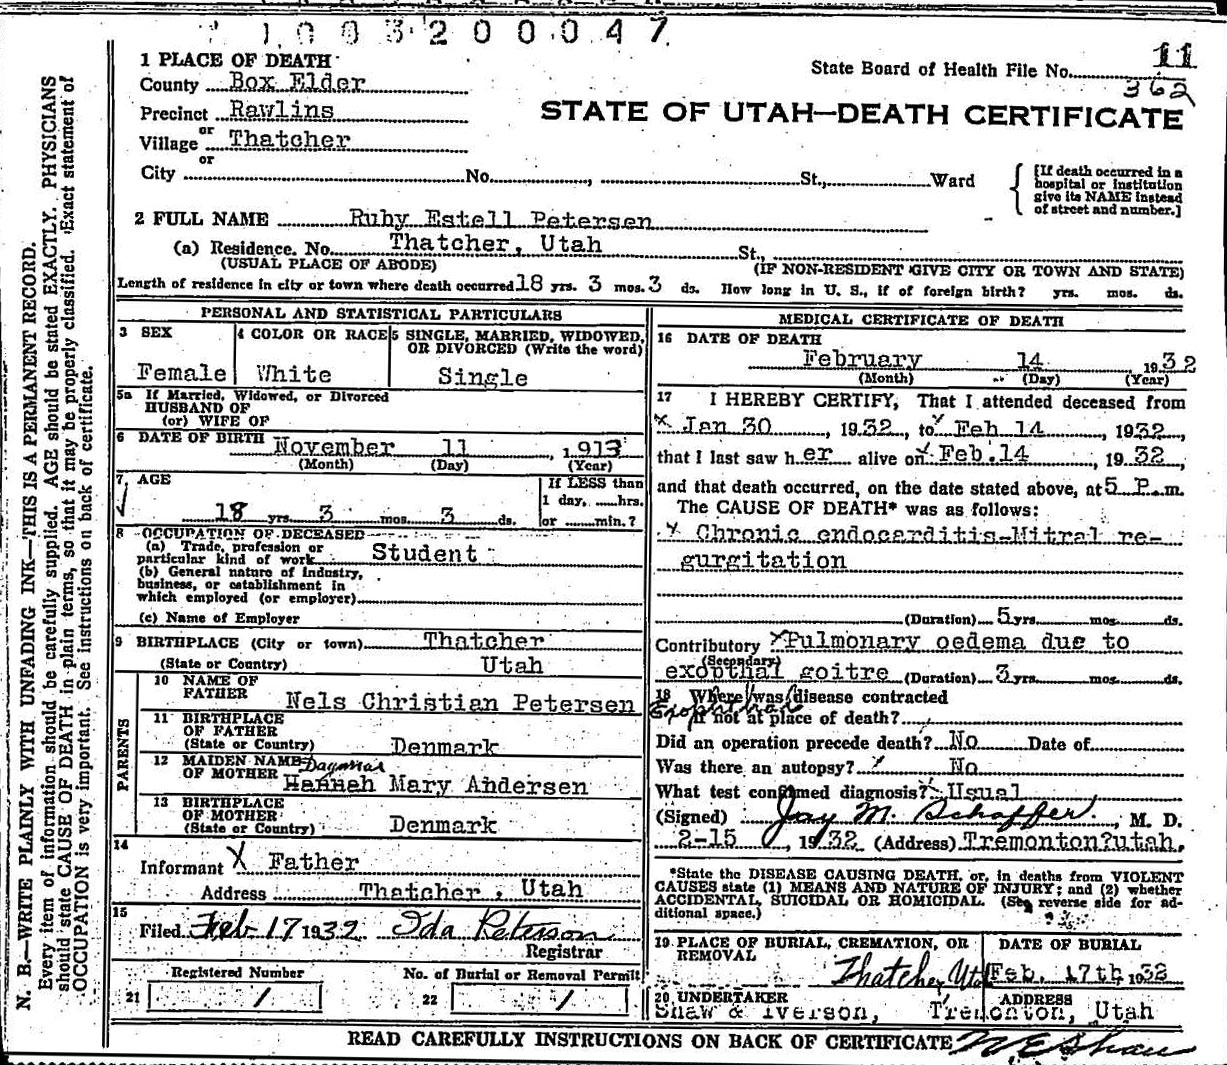 1003200047
11
1 PLACE OF DEATH
State Board of Health File No.
362
County Box Elder
STATE OF UTAH—DEATH CERTIFICATE
Precinct Rawlins
or
Village Thatcher
or
City No. , St., Ward
[If death occurred in a
hospital or institution
give its NAME instead
of street and number.]
2 FULL NAME Ruby Estell Petersen
(a) Residence. No. Thatcher, Utah St.,
(USUAL PLACE OF ABODE) (IF NON-RESIDENT GIVE CITY OR TOWN AND STATE)
Length of residence in city or town where death occurred 18 yrs. 3 mos. 3 ds. How long in U. S., if of foreign birth? yrs. mos. ds.
PERSONAL AND STATISTICAL PARTICULARS
3 SEX
Female
4 COLOR OR RACE
White
5 SINGLE, MARRIED, WIDOWED,
OR DIVORCED (Write the word)
Single
5a If Married, Widowed, or Divorced
HUSBAND OF
(or) WIFE OF
6 DATE OF BIRTH November 11 , 1913
(Month) (Day) (Year)
7 AGE
18 yrs. 3 mos. 3 ds.
If LESS than
1 day, hrs.
or min.?
8 OCCUPATION OF DECEASED
(a) Trade, profession or
particular kind of work Student
(b) General nature of industry,
business, or establishment in
which employed (or employer)
(c) Name of Employer
9 BIRTHPLACE (City or town) Thatcher
(State or Country) Utah
PARENTS
10 NAME OF
FATHER Nels Christian Petersen
11 BIRTHPLACE
OF FATHER
(State or Country) Denmark
12 MAIDEN NAME
OF MOTHER Dagmar
Hannah Mary Andersen
13 BIRTHPLACE
OF MOTHER
(State or Country) Denmark
14
Informant X Father
Address Thatcher, Utah
15
Filed Feb 17 1932 Ida Peterson
Registrar
Registered Number
21 1
No. of Burial or Removal Permit
22 1
MEDICAL CERTIFICATE OF DEATH
16 DATE OF DEATH
February 14 1932
(Month) (Day) (Year)
17 I HEREBY CERTIFY, That I attended deceased from
x Jan 30 , 1932, to x Feb 14 , 1932,
that I last saw her alive on x Feb.14 , 1932,
and that death occurred, on the date stated above, at 5 P.m.
The CAUSE OF DEATH* was as follows:
x Chronic endocarditis-Mitral re-
gurgitation
(Duration) 5 yrs. mos. ds.
Contributory x Pulmonary oedema due to
(Secondary)
exopthal goitre (Duration) 3 yrs. mos. ds.
18 Where was disease contracted
if not at place of death?
Did an operation precede death? No Date of
Was there an autopsy? No
What test confirmed diagnosis? Usual
(Signed) Jay M. Schaffer , M. D.
2-15 , 1932 (Address) Tremonton?utah.
*State the DISEASE CAUSING DEATH, or, in deaths from VIOLENT
CAUSES state (1) MEANS AND NATURE OF INJURY; and (2) whether
ACCIDENTAL, SUICIDAL OR HOMICIDAL. (See reverse side for ad-
ditional space.)
19 PLACE OF BURIAL, CREMATION, OR
REMOVAL
Thatcher Utah
DATE OF BURIAL
Feb. 17th, 1932
20 UNDERTAKER
Shaw & Iverson,
ADDRESS
Tremonton, Utah
READ CAREFULLY INSTRUCTIONS ON BACK OF CERTIFICATE
N. B.—WRITE PLAINLY WITH UNFADING INK—THIS IS A PERMANENT RECORD.
Every item of information should be carefully supplied. AGE should be stated EXACTLY. PHYSICIANS
should state CAUSE OF DEATH in plain terms, so that it may be properly classified. Exact statement of
OCCUPATION is very important. See instructions on back of certificate.